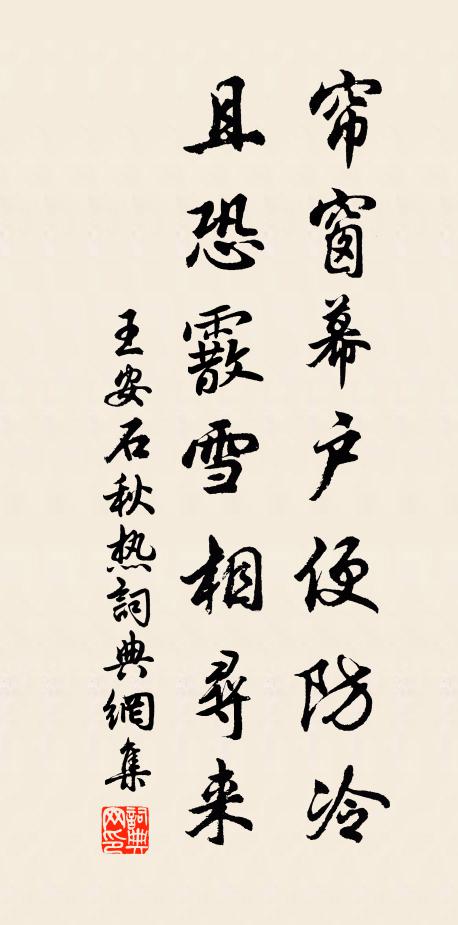 帘窗幕户便防冷
且恐霰雪相尋来
王安石秋热詞典網集
詞典网印